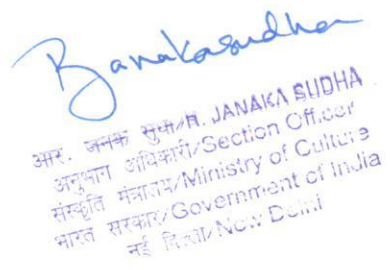 Rjanakasudha
आर. जनक सुधा/R. JANAKA SUDHA
अनुभाग अधिकारी/Section Officer
संस्कृति मंत्रालय/Ministry of Culture
भारत सरकार/Government of India
नई दिल्ली/New Delhi